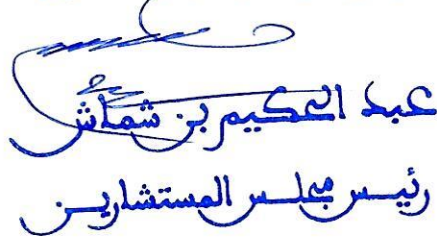 عبد الحكيم بن شماش
رئيس مجلس المستشارين